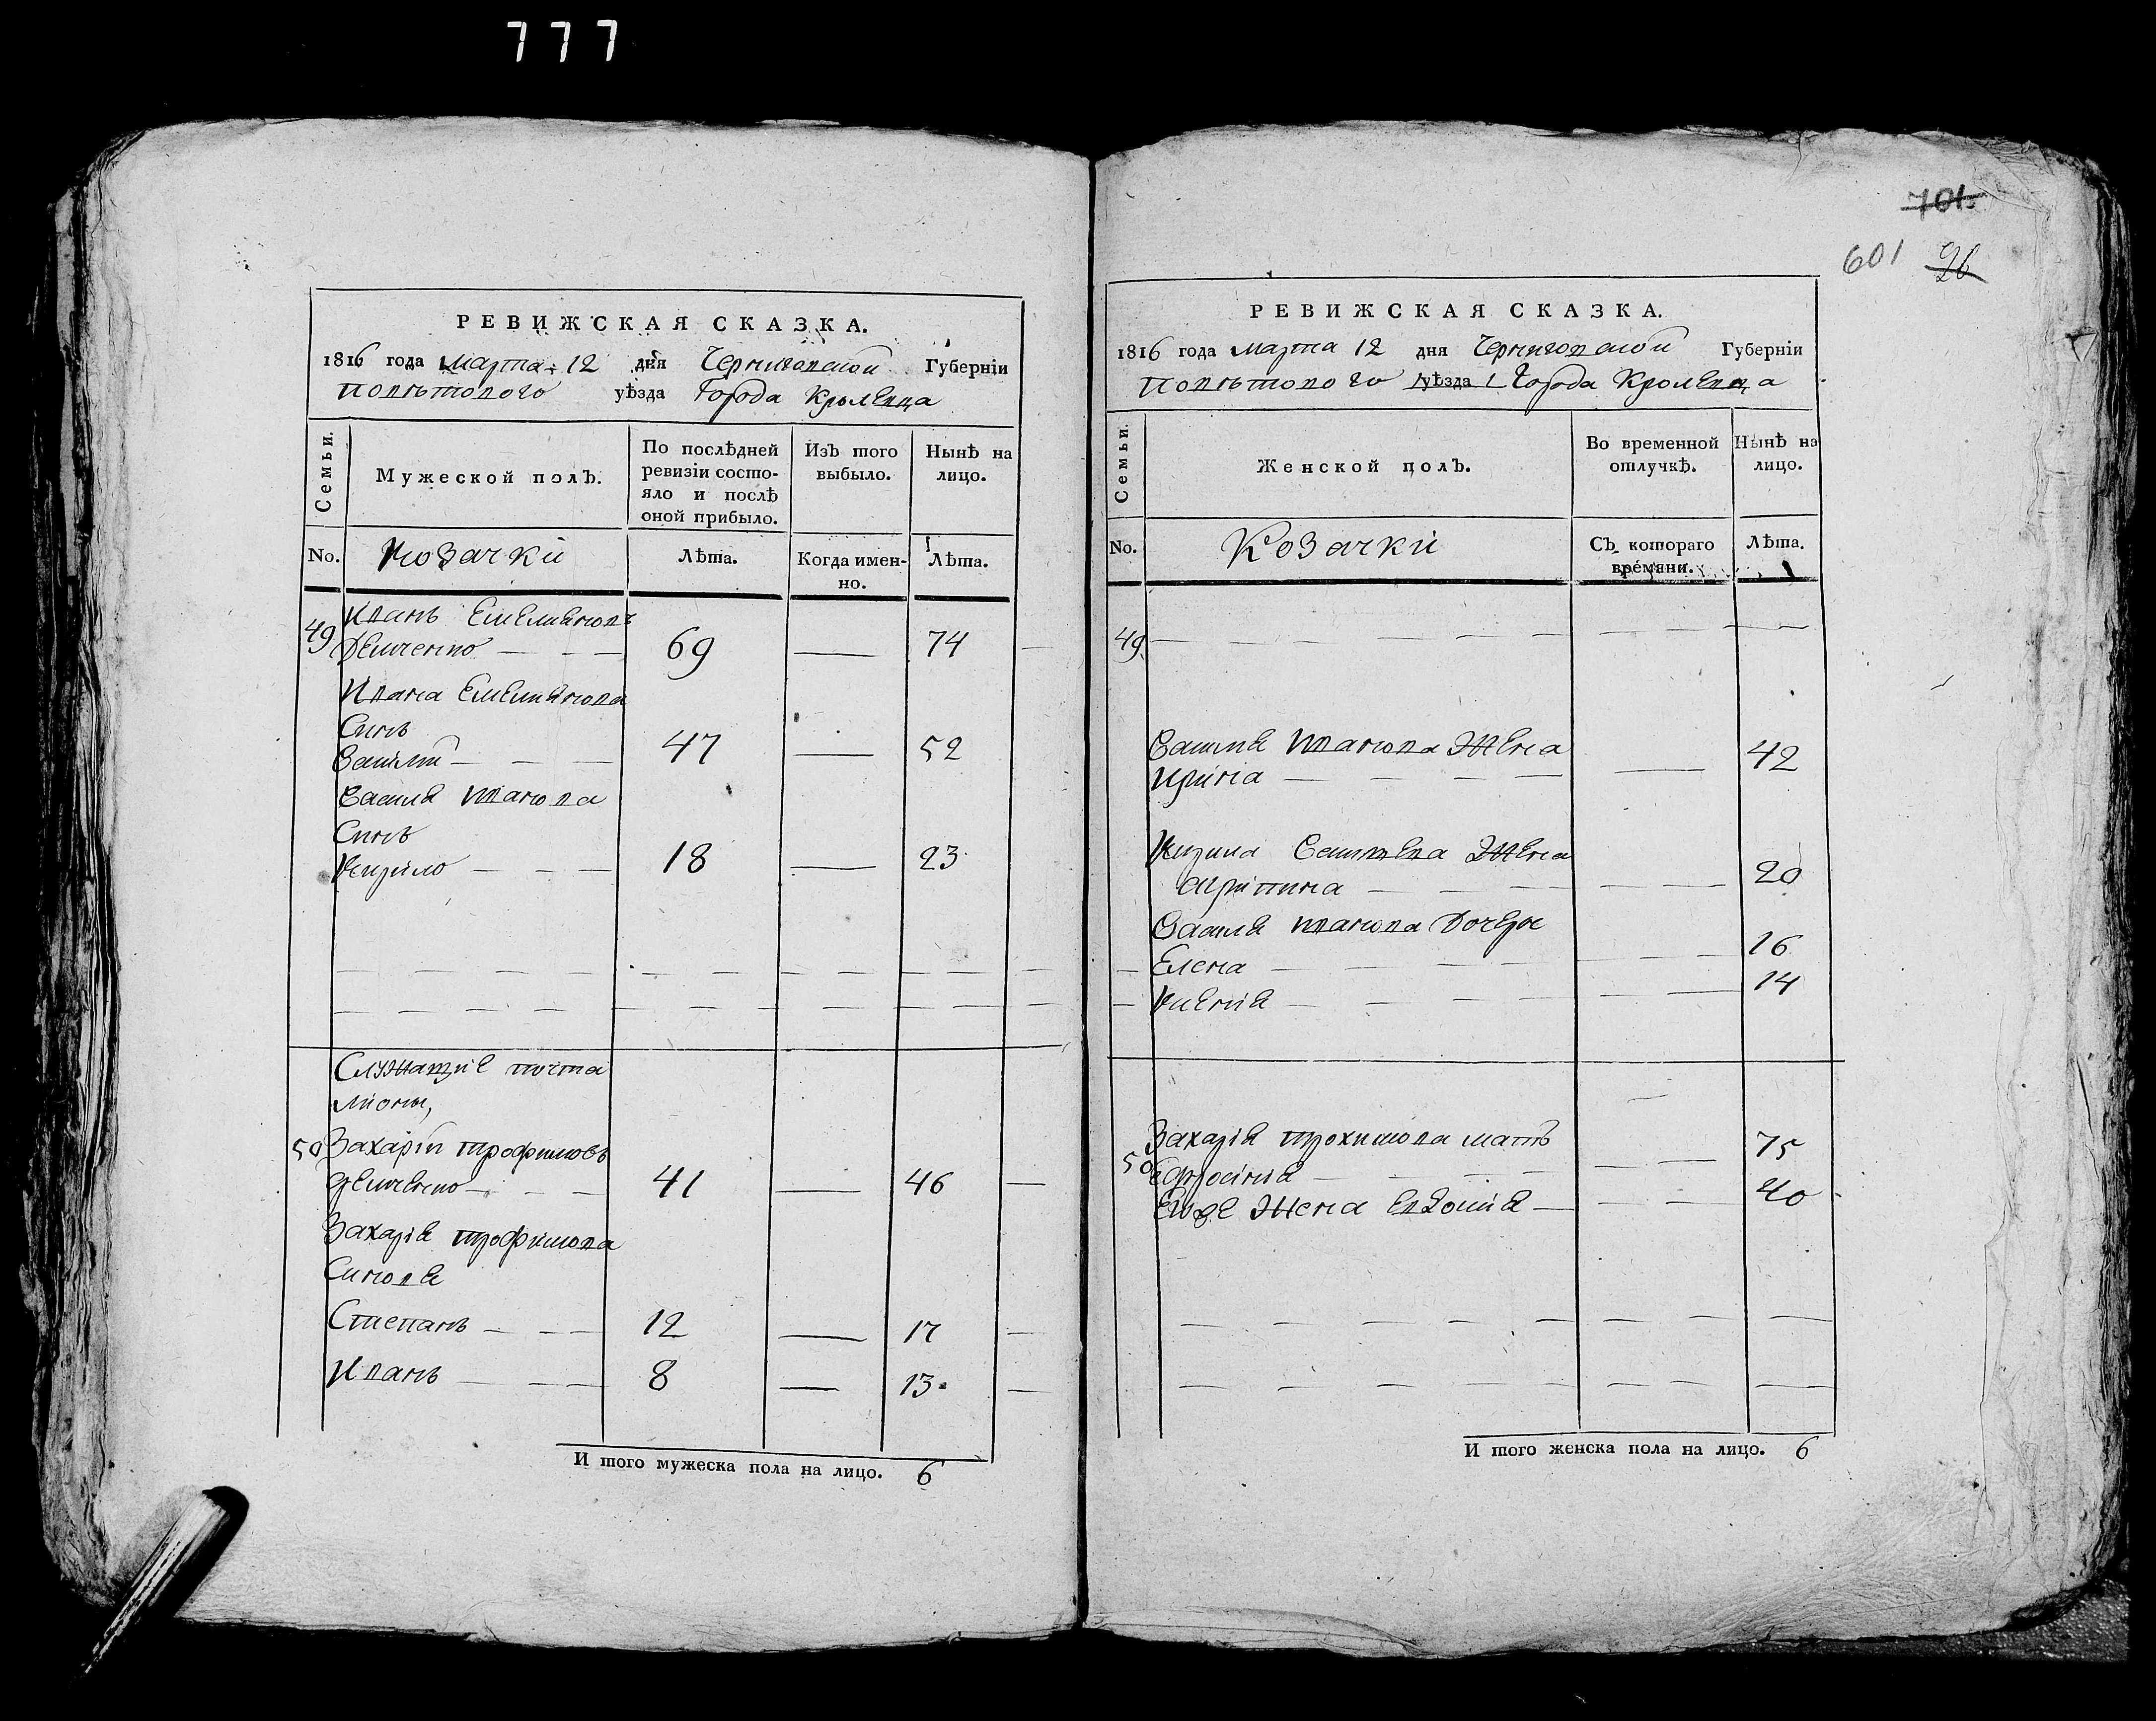 777
РЕВИЖСКАЯ СКАЗКА.
1816 года Марта 12 дня Черниговской Губерніи
Поветового уѣзда Города Кролевца
Семьи.
Мужеской полъ.
По послѣдней
ревизіи состо-
яло и послѣ
оной прибыло.
Изъ того
выбыло.
Нынѣ на
лицо.
No. Козачки Лѣта. Когда имен-
но. Лѣта.
49 Иванъ Емельяновъ
Демченко — — — 69 — 74
Ивана Емельянова
Синъ
Василий — — — 47 — 52
Василя Иванова
Синъ
Кирило — — — 18 — 23
Служащие почта
лионы,
50 Захарій трофимовъ
демченко — — — 41 — 46
Захарія трофимова
Синовя
Степанъ — — — 12 — 17
Иванъ — — — 8 — 13
И того мужеска пола на лицо. 6
701
601 26
РЕВИЖСКАЯ СКАЗКА.
1816 года Марта 12 дня Черниговской Губерніи
Поветового уѣзда Города Кролевца
Семьи.
Женской полъ.
Во временной
отлучкѣ.
Нынѣ на
лицо.
No. Козачки Съ котораго
времяни. Лѣта.
49
Василя Иванова Жена
Ирина — — — — — 42
Кирила Василева Жена
Агрипина — — — — — 20
Василя Иванова Дочеры
Елена — — — — — 16
Ксения — — — — — 14
50 Захарія трохимова мать
Ефросиния — — — — — 75
Его же Жена Евдокия — — — 40
И того женска пола на лицо. 6